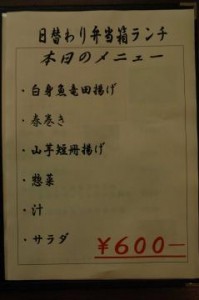 日替わり弁当箱ランチ
本日のメニュー
・白身魚竜田揚げ
・春巻き
・山芋短冊揚げ
・惣菜
・汁
・サラダ
¥600―